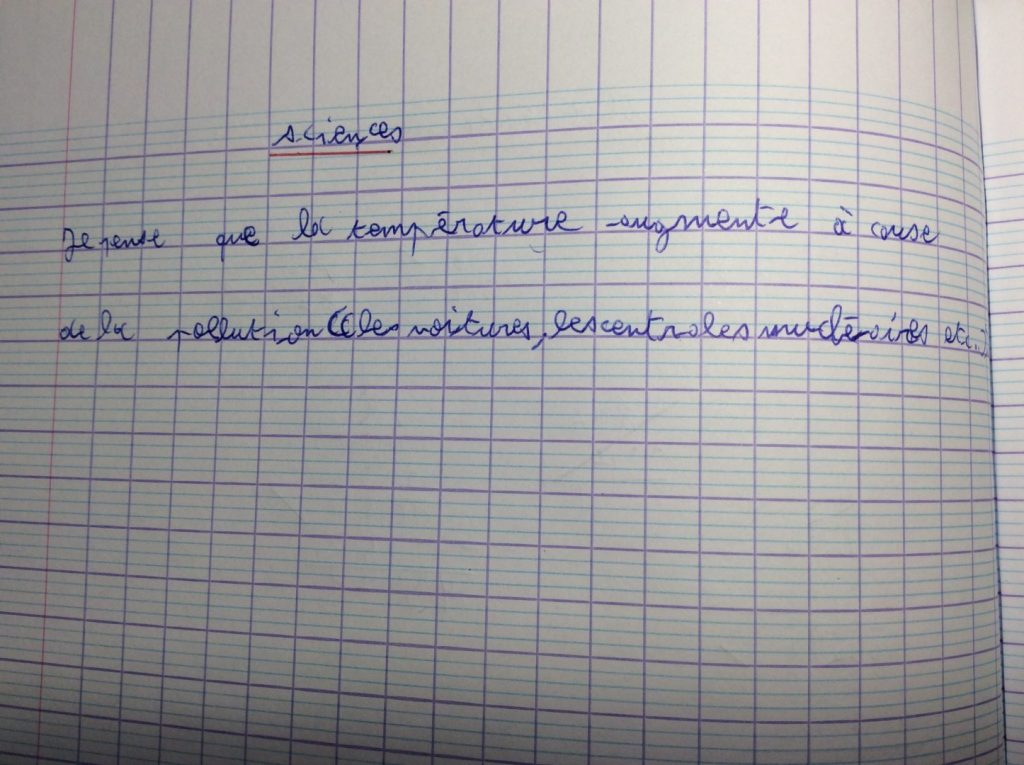 sciences
Je pense que la température augmente à cause
de la pollution (les voitures, les centrales nucléaires etc...)